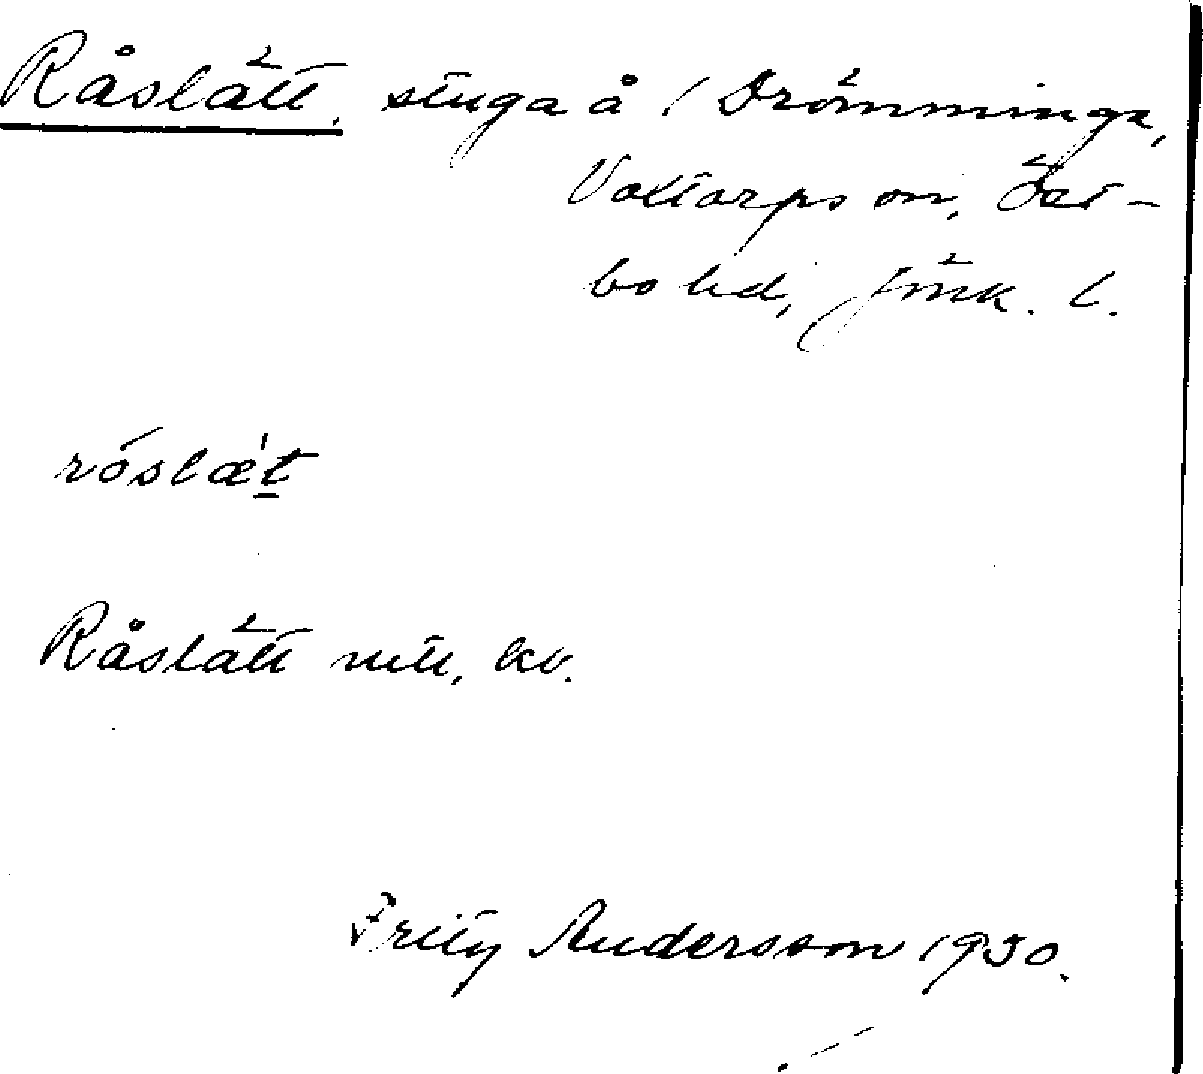 Råslätt. stuga å / Drömminge,
Valtorps sn, Öst-
bo hd, Jönk. l.
róslæ't
Råslätt mtl, kv.
Fritz Andersson 1930.